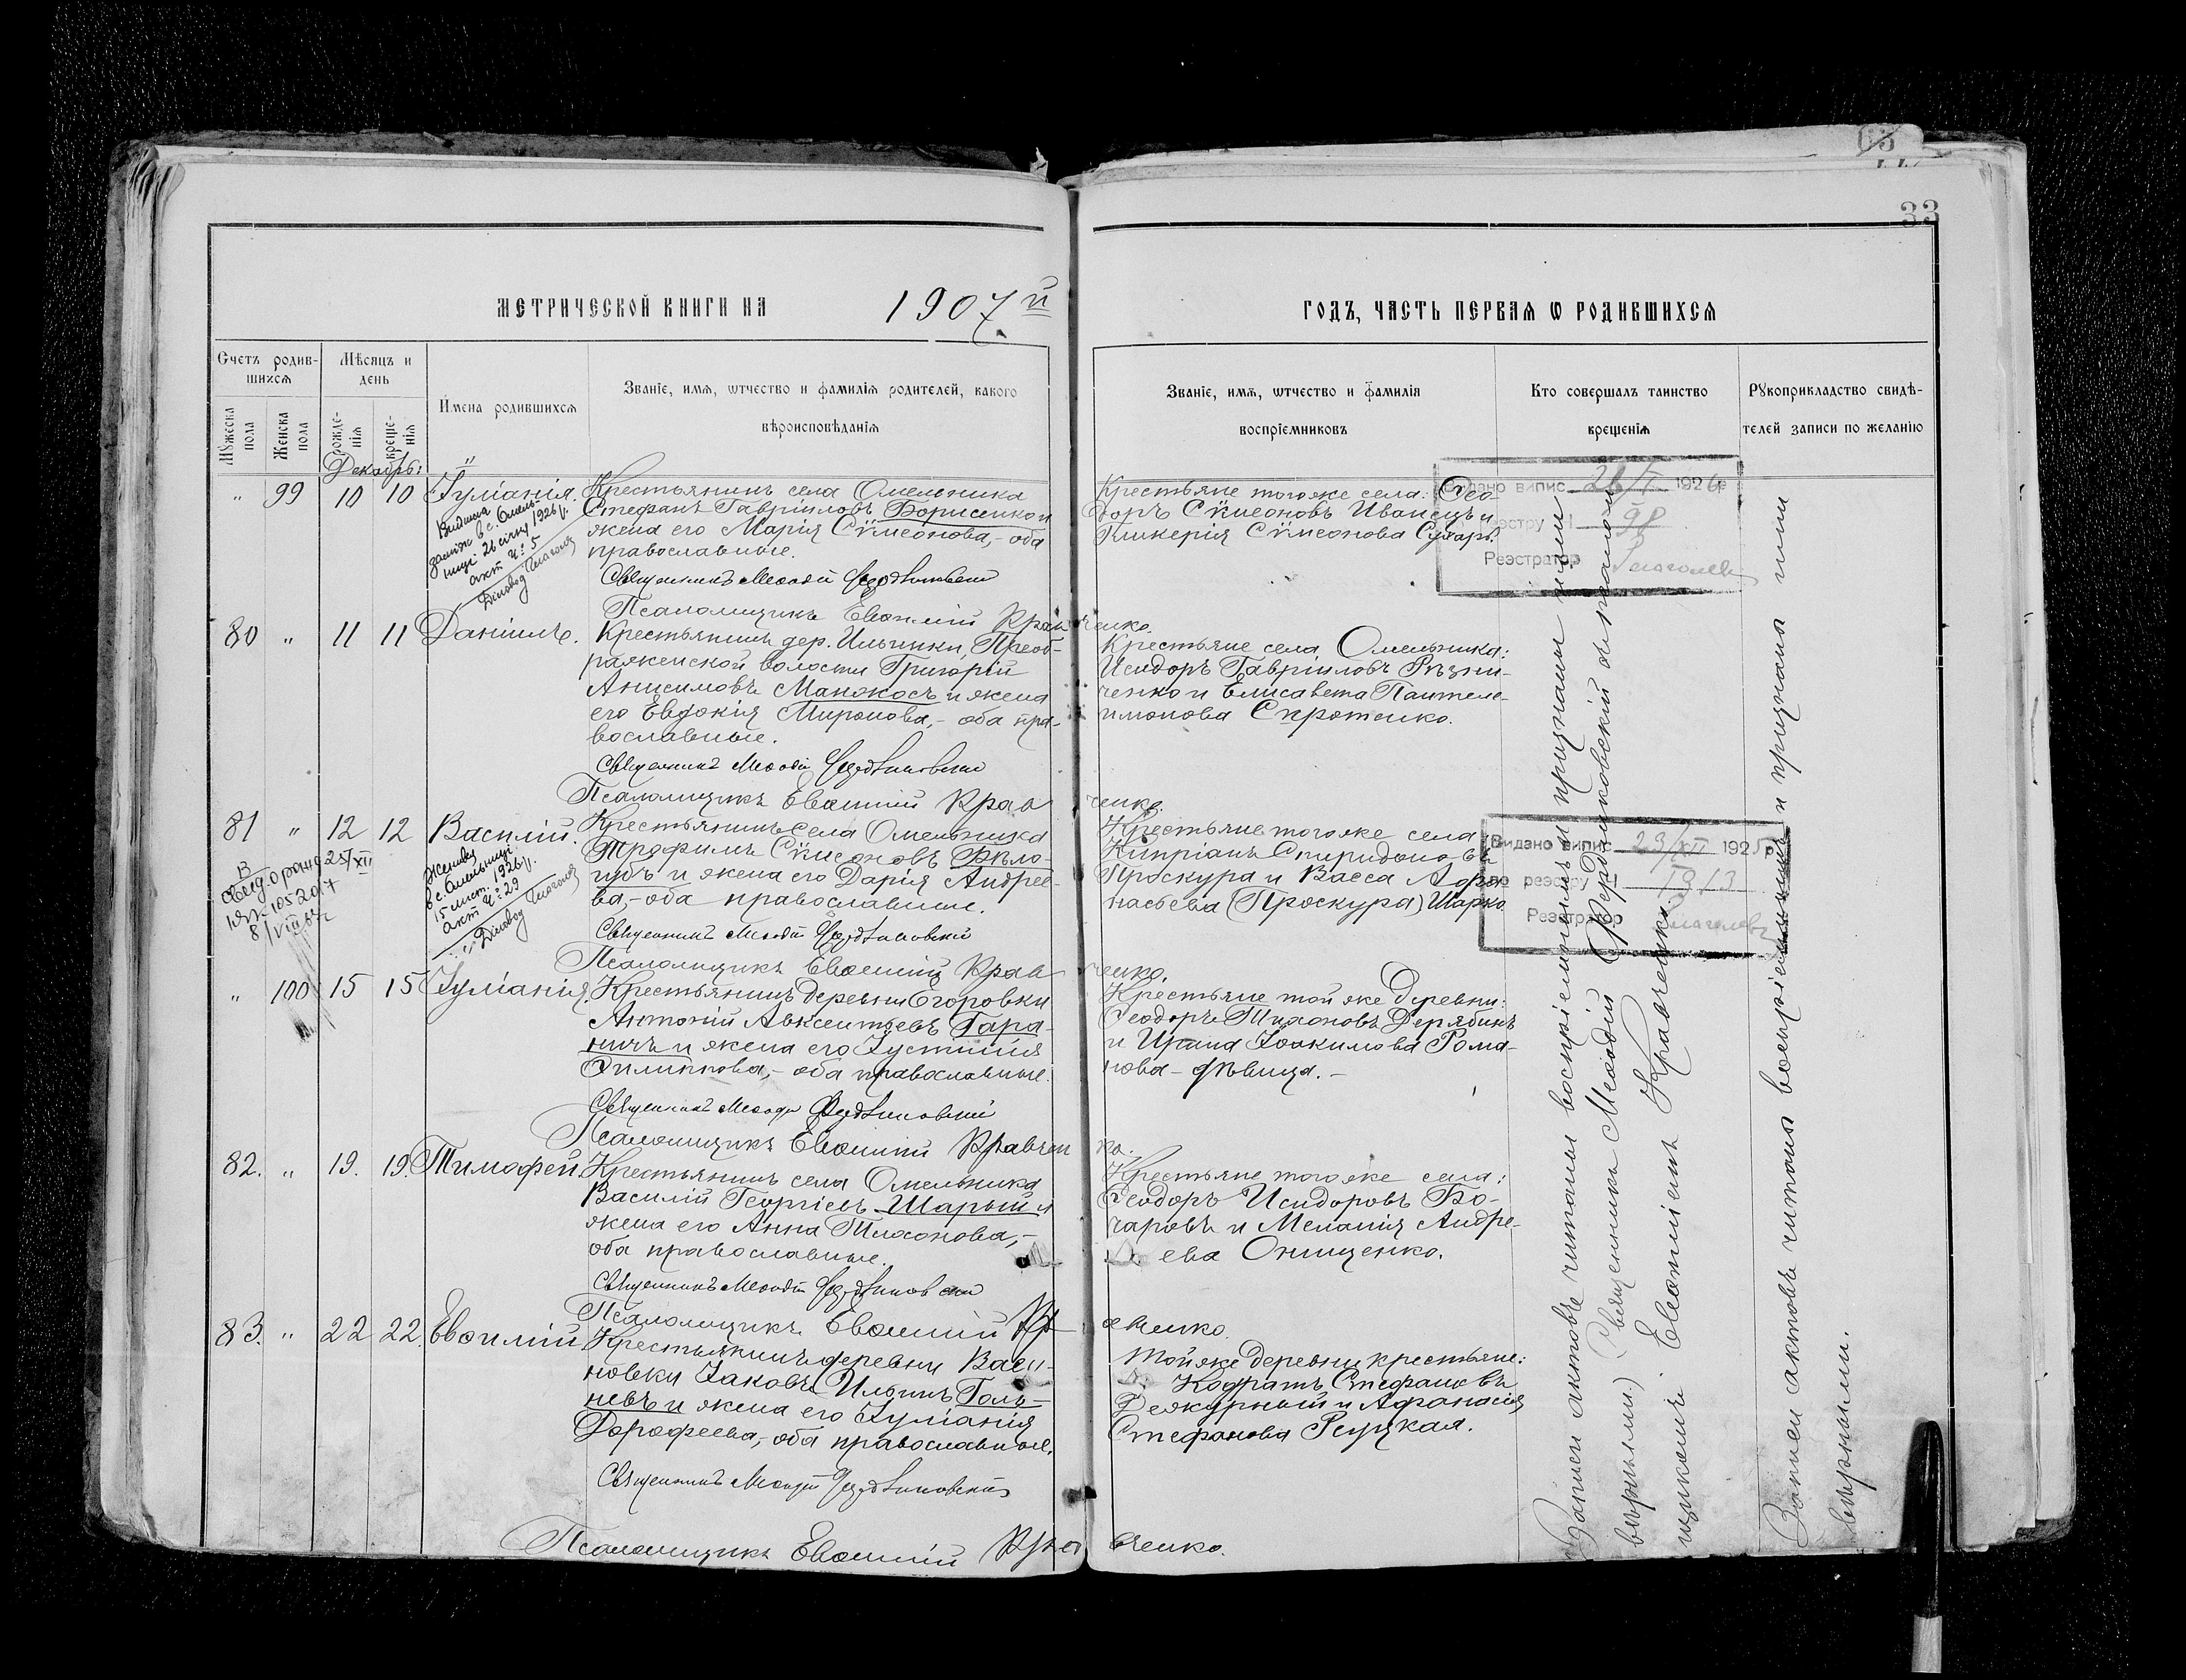 33
МЕТРИЧЕСКОЙ КНИГИ НА 1907й
ГОДЪ, ЧАСТЬ ПЕРВАЯ Ѡ РОДИВШИХСЯ
Счетъ родив-
шихся
Мѣсяцъ и
день
Имена родившихся
Званіе, имя, ѡтчество и фамилія родителей, какого
вѣроисповѣданія
Мꙋжеска
пола
Женска
пола
рожде-
нія
креще-
нія
Званіе, имя, ѡтчество и фамилія
воспріемниковъ
Кто совершалъ таинство
крещенія
Рꙋкоприкладство свидѣ-
телей записи по желанію
Декабрь:
" 99 10 10 Іуліанія.
Крестьянинъ села Омельника
Стефанъ Гавріиловъ Борисенко и
жена его Марія Сѵмеонова,- оба
православные.
Священникъ Меѳодій
Псаломщикъ Евѳимій Кравченко.
Крестьяне того же села: Ѳео-
доръ Сѵмеоновъ Иванецъ и
Гликерія Сѵмеонова Сухарь.
Видано випис 26/I 1926р
по реэстру № 98
Реэстратор
80 " 11 11 Даніилъ.
Крестьянинъ дер. Ильинки, Преоб-
раженской волости Григорій
Анисимовъ Манжосъ и жена
его Евдокія Миронова,- оба пра-
вославные.
Священникъ Меѳодій
Псаломщикъ Евѳимій Кравченко.
Крестьяне села Омельника:
Исидоръ Гавріиловъ Рѣзни-
ченко и Елисавета Пантеле-
имонова Сиротенко.
81 " 12 12 Василій.
Крестьянинъ села Омельника
Трофимъ Сѵмеоновъ Бѣло-
губъ и жена его Дарія Андрее-
ва,- оба православные.
Священникъ Меѳодій
Псаломщикъ Евѳимій Кравченко.
Крестьяне того же села
Кипріанъ Спиридоновъ
Проскура и Васса Аѳа-
насьева (Проскура) Шарко
Видано випис 23/XII 1925р
по реэстру № 1313
Реэстратор
" 100 15 15 Іуліанія.
Крестьянинъ деревни Егоровки
Антоній Авксентьевъ Гара-
ничъ и жена его Іустинія
Филиппова,- оба православные.
Священникъ Меѳодій
Псаломщикъ Евѳимій Кравченко.
Крестьяне той же деревни:
Ѳеодоръ Тихоновъ Дерябинъ
и Ирина Іоакимова Рома-
нова - дѣвица. -
82. " 19. 19. Тимоѳей.
Крестьянинъ села Омельника
Василій Георгіевъ Шарый и
жена его Анна Тихонова,-
оба православные.
Священникъ Меѳодій
Псаломщикъ Евѳимій Кравченко.
Крестьяне того же села:
Ѳеодоръ Исидоровъ Бо-
чаровъ и Меланія Андре-
ева Онищенко.
83. " 22 22. Евѳимій.
Крестьянинъ деревни Васи-
новки Іаковъ Ильинъ Голь-
невъ и жена его Іуліанія
Дороѳеева,- оба православные.
Священникъ Меѳодій
Псаломщикъ Евѳимій Кравченко.
Той же деревни крестьяне:
Кодратъ Стефановъ
Дежурный и Аѳанасія
Стефанова Рєуцкая.
Записи актовъ читалъ воспріемникамъ и признаны ими
вѣрными) Священникъ Меѳодій
Евѳимій Кравченко
Записи актовъ читаны воспріемникамъ и признаны ими
вѣрными.